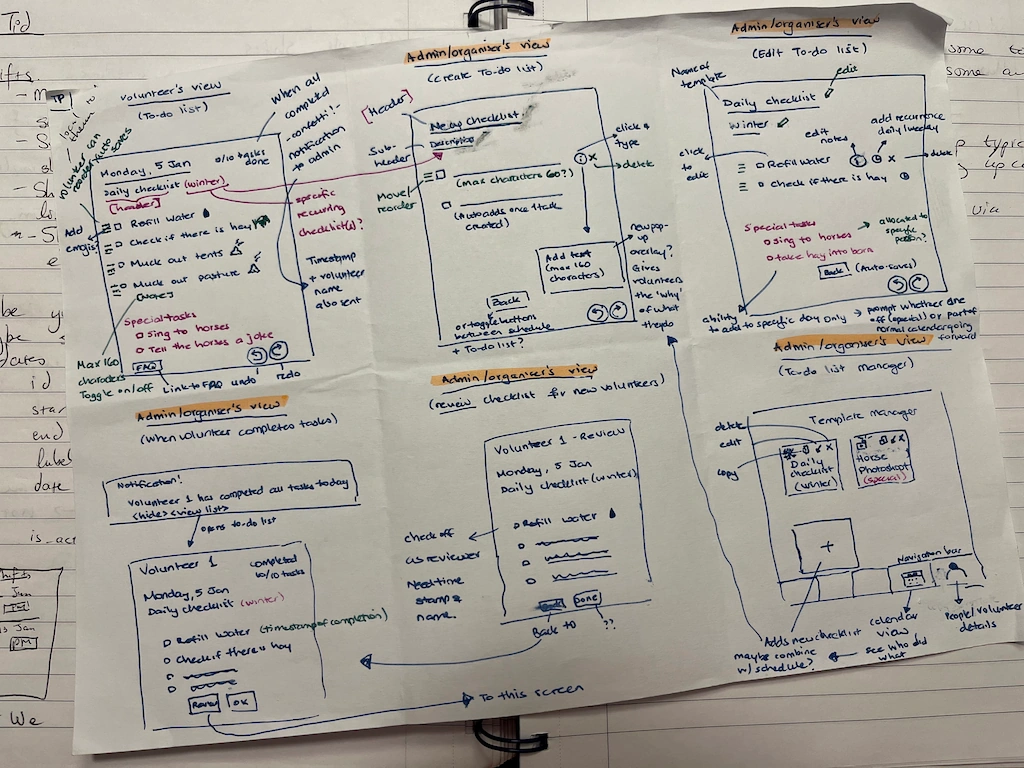 Volunteer's view
(To-do list)
When all
completed
-confetti!-
notification
→ admin
Volunteer can
reorder, auto saves
Monday, 5 Jan
0/10 tasks
done
Daily checklist (winter)
[header]
Add
emojis
Refill water
Check if there is hay
Muck out tents
Muck out pasture
[Notes]
Special tasks
Sing to horses
Tell the horses a joke
FAQ
Max 160
characters
Toggle on/off
Link to FAQ
undo
redo
specific
recurring
checklist(s)?
Timestamp
+ volunteer
name
also sent
Admin/organiser's view
(Create To-do list)
[Header]
New checklist
Sub-
header
Description
click &
type
delete
Move/
reorder
(max characters 60?)
(Auto adds once 1 task
created)
Add text
(max 160
characters)
new pop-
up
overlay?
Gives
volunteers
the 'why'
of what
they do
Back
or toggle buttons
between schedule
+ To-do list?
Admin/organiser's view
(Edit To-do list)
Name of
template
edit
Daily checklist
Winter
click
to
edit
edit
notes
add recurrence
daily/weekly
Refill water
x
delete
Check if there is hay
Special tasks
Sing to horses
take hay into barn
allocated to
specific
person?
Back
(Auto-saves)
ability
to add to specific day only → prompt whether one
off (special) or part of
normal calendar going
forward
Admin/organiser's view
(When volunteer completes tasks)
Notification!
Volunteer 1 has completed all tasks today
<hide> <view list>
opens to-do list
Volunteer 1
completed
10/10 tasks
Monday, 5 Jan
Daily checklist (winter)
Refill water (timestamp of completion)
Check if there is hay
Review
OK
To this screen
Admin/organiser's view
(review checklist for new volunteers)
Volunteer 1 - Review
Monday, 5 Jan
Daily checklist (winter)
Refill water
check off
as reviewer
Need time
stamp &
name.
Done
Back to
??
Admin/organiser's view
(To-do list manager)
Template manager
delete
edit
copy
Daily
checklist
(winter)
Horse
Photoshoot
(special)
+
Navigation bar
Adds new checklist
maybe combine
w/ schedule?
calendar
view
see who did
what
People/volunteer
details